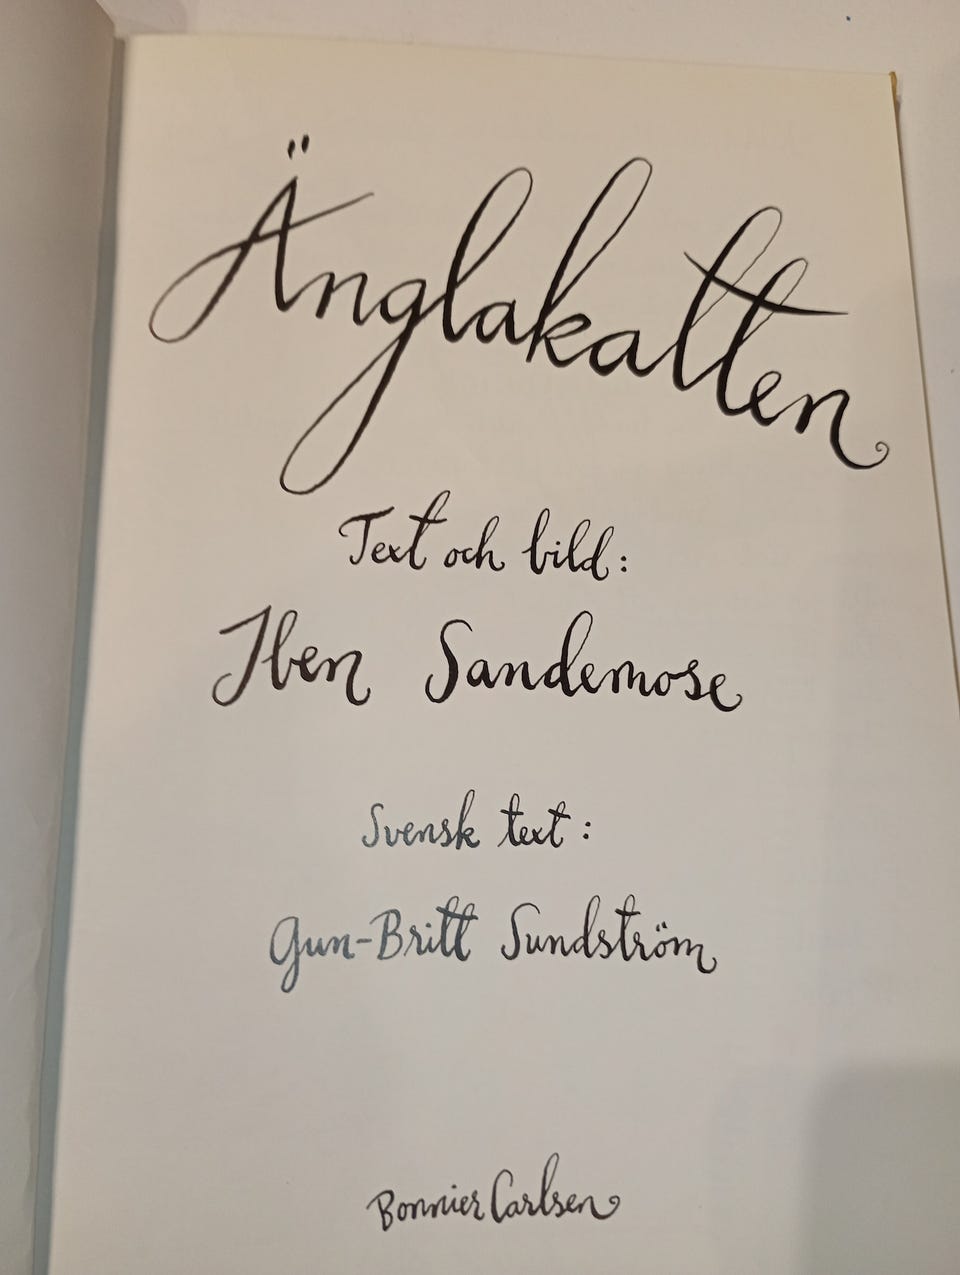 Änglakatten
Text och bild:
Iben Sandemose
Svensk text:
Gun-Britt Sundström
Bonnier Carlsen